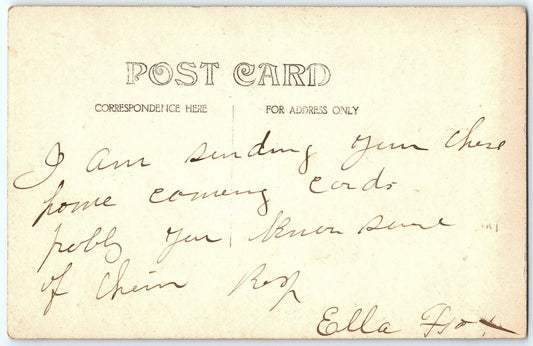 POST CARD
CORRESPONDENCE HERE
FOR ADDRESS ONLY
I am sending you these
home comeing cards.
probly you know some
of them Resp
Ella Fox